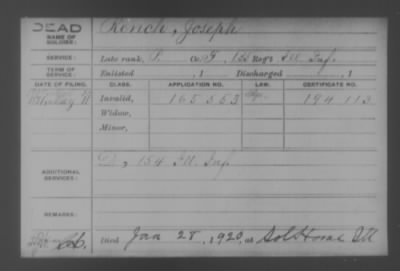 DEAD
NAME OF SOLDIER: Rench, Joseph
SERVICE: Late rank, P. Co. F, 133 Reg't Ill Inf.
TERM OF SERVICE: Enlisted , 1 Discharged , 1
DATE OF FILING. CLASS. APPLICATION NO. LAW. CERTIFICATE NO.
Invalid, 165 553 194 113
Widow,
Minor,
ADDITIONAL SERVICES: D, 154 Ill. Inf.
REMARKS:
Died Jan 28, 1920, at Sol Home Ill